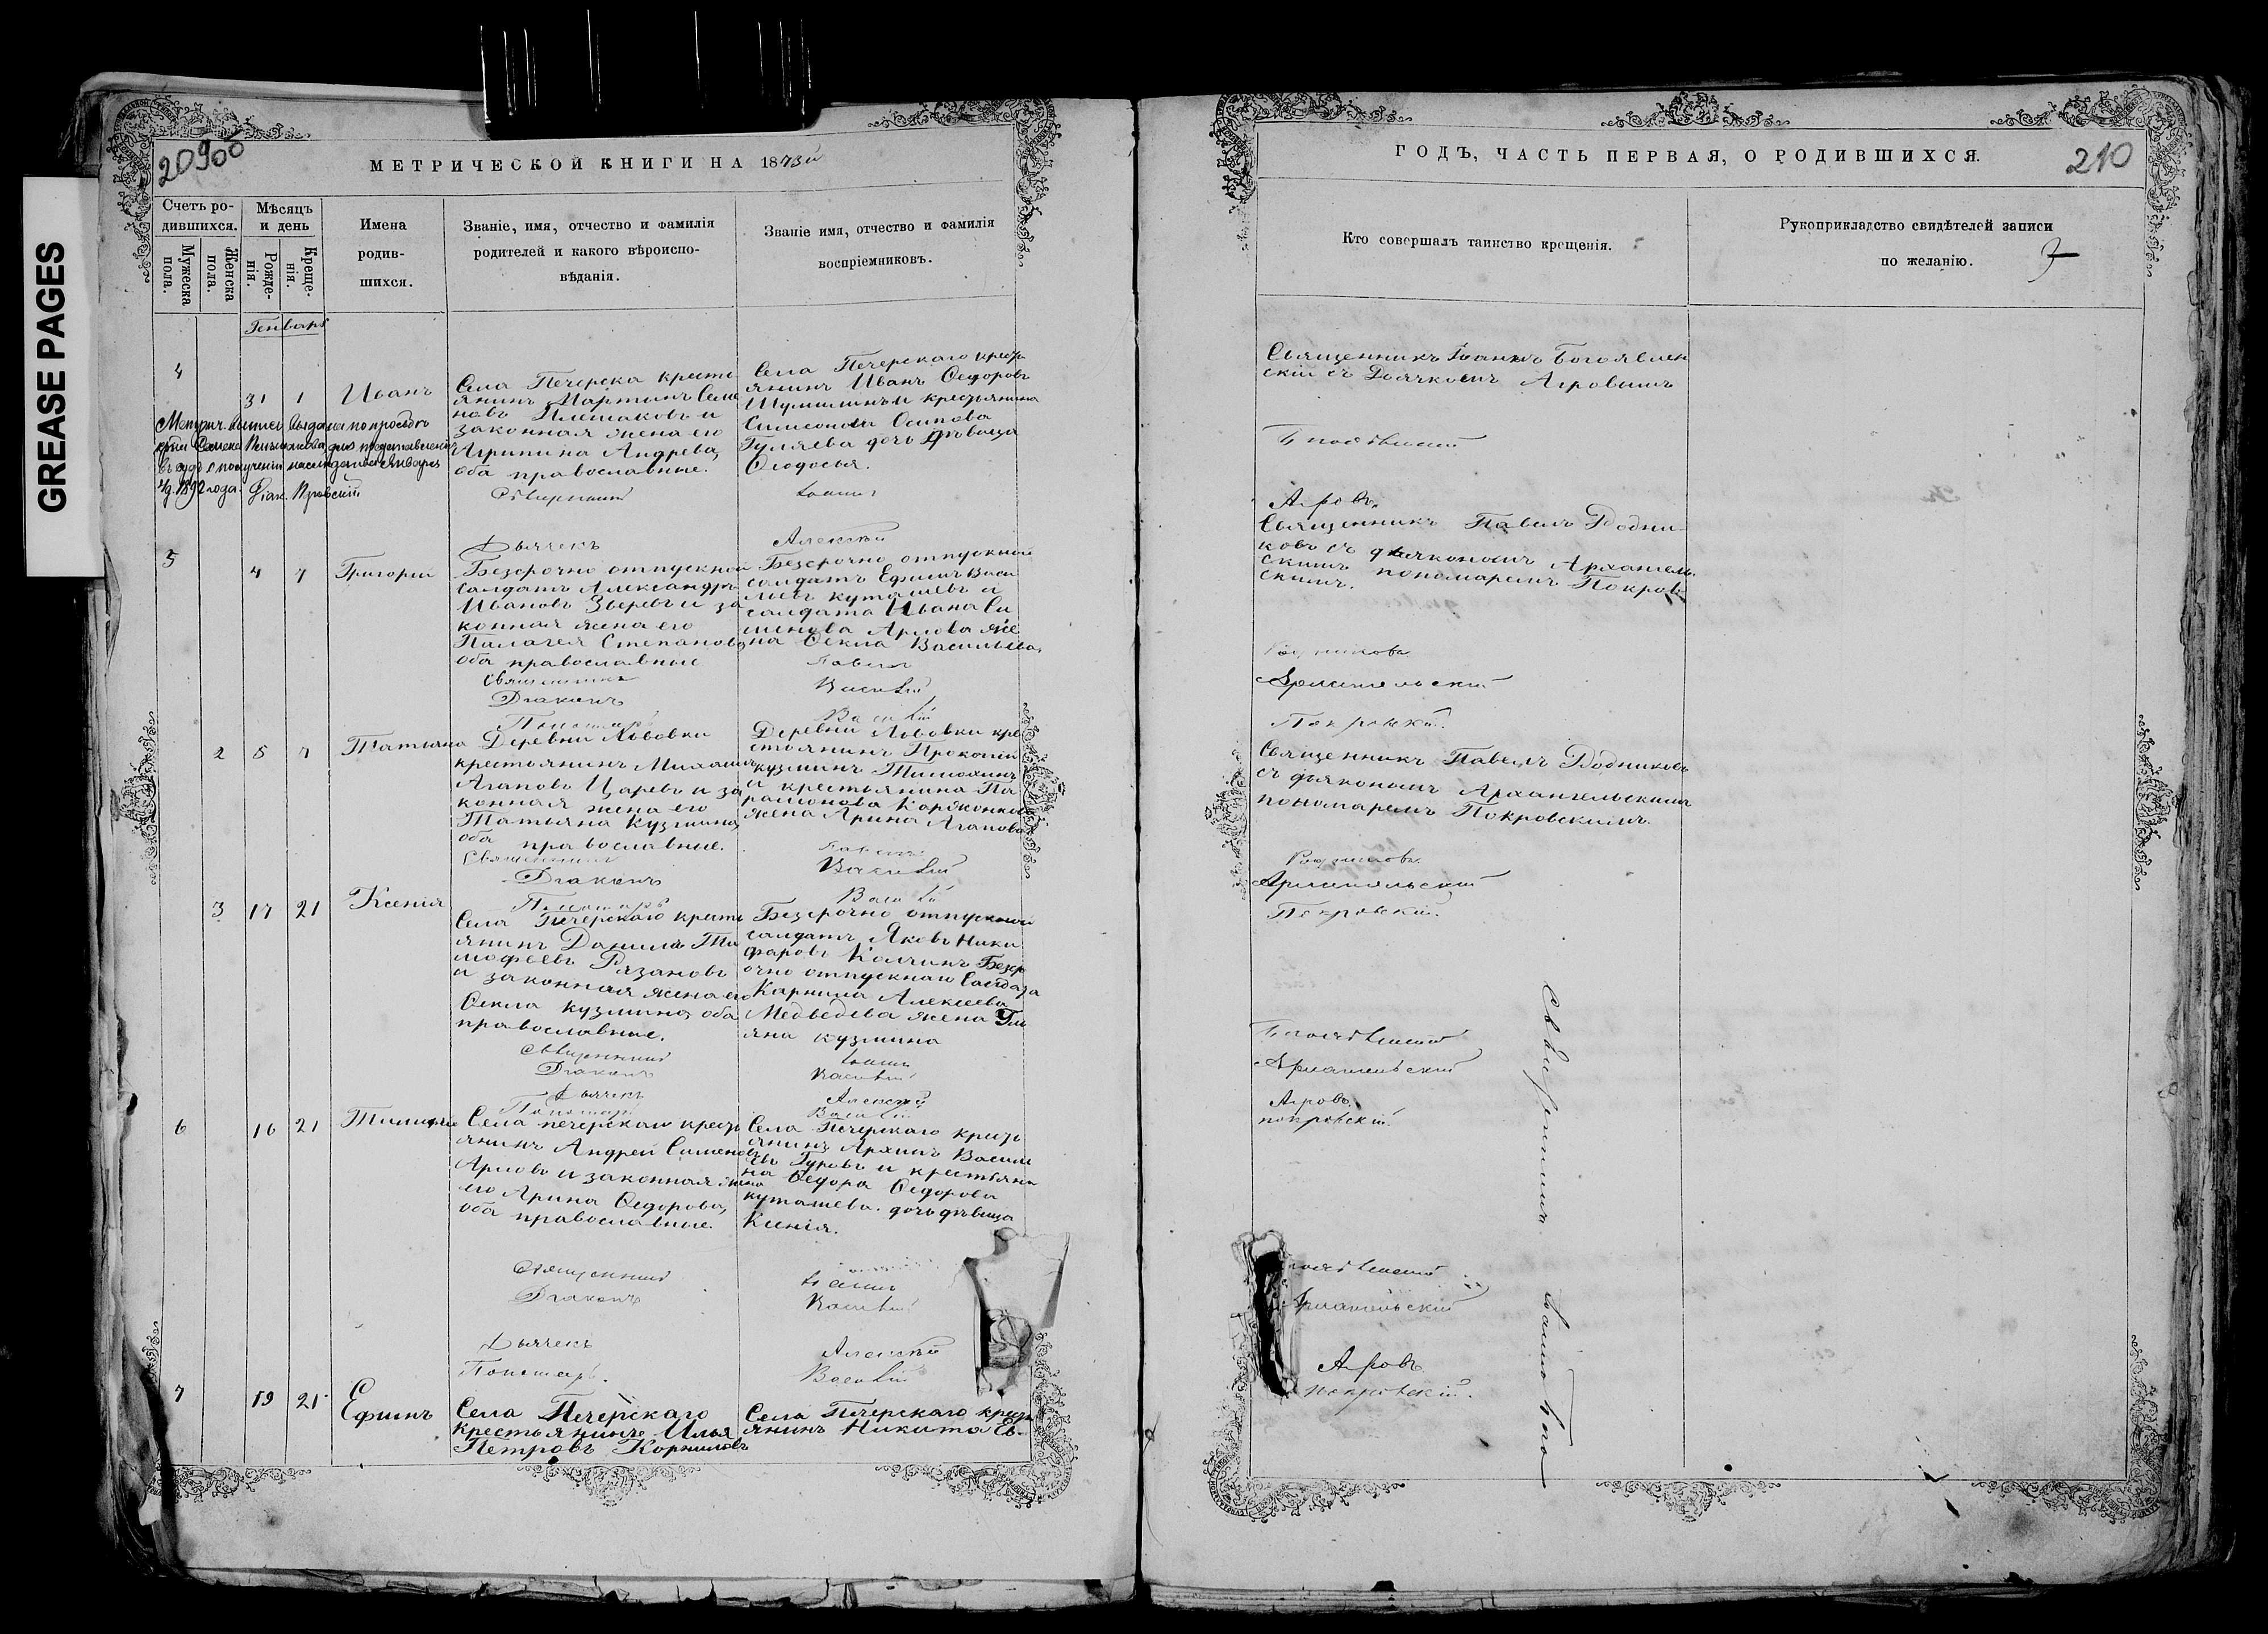 GREASE PAGES
20900
МЕТРИЧЕСКОЙ КНИГИ НА 1873й
Счетъ ро-
дившихся.
Мужеска
пола.
Женска
пола.
Мѣсяцъ
и день
Рожде-
нія.
Креще-
нія.
Имена
родив-
шихся.
Званіе, имя, отчество и фамилія
родителей и какого вѣроиспо-
вѣданія.
Званіе имя, отчество и фамилія
воспріемниковъ.
Генварь
4
31 1 Иванъ
Села Печерска кресть
янинъ Мартынъ Семе
новъ Плешаковъ и
законная жена его
Агрипина Андрева,
оба православные.
Села Печерскаго кресть
янинъ Иванъ Ѳедоровъ
Шумилинъ и крестьянина
Симеона Осипова
Гуляева дочь дѣвица
Ѳеодосья.
1892 года.
Священникъ Іоаннъ
Дьячекъ Алексѣй
5 4 7 Григорій
Безсрочно отпускной
солдатъ Александръ
Ивановъ Зверевъ и за
конная жена его
Палагея Степанова,
оба православные
Безсрочно отпускной
солдатъ Ефимъ Васи
льевъ Куташевъ и
солдата Ивана Си
менова Арлова же
на Ѳекла Васильева,
Священникъ Павелъ
Діаконъ Василій
Пономарь Василій
2 5 7 Татьяна
Деревни Львовки
крестьянинъ Михаилъ
Агаповъ Царевъ и за
конная жена его
Татьяна Кузмина,
оба православные.
Деревни Львовки кре
стьянинъ Прокопій
Кузминъ Тимохинъ
и крестьянина Па
рамонова
жена Арина Агапова
Священникъ Павелъ
Діаконъ Василій
Пономарь Василій
3 17 21 Ксенія
Села Печерскаго кресть
янинъ Данила Ти
мофеевъ Рязановъ
и законная жена его
Ѳекла Кузмина, оба
православные.
Безсрочно отпускной
солдатъ Яковъ Ники
фаровъ Калинъ Безср
очно отпускнаго солдата
Карнила Алексеева
Медведева жена Уль
яна Кузмина
Священникъ Іоаннъ
Діаконъ Василій
Дьячекъ Алексѣй
Пономарь Василій
6 16 21
Села печерскаго кресть
янинъ Андрей Сименовъ
Арловъ и законная жена
его Арина Ѳедорова,
оба православные.
Села Печерскаго кресть
янинъ Архипъ Василь
евъ Гуровъ и крестьяни
на Ѳедора Ѳедорова
Куташева дочь дѣвица
Ксенія.
Священникъ Іоаннъ
Діаконъ Василій
Дьячекъ Алексѣй
Пономарь Василій
7 19 21 Ефимъ
Села Печерскаго
крестьянинъ Илья
Петровъ Корниловъ
Села Печерскаго кресть
янинъ Никита Ев-
ГОДЪ, ЧАСТЬ ПЕРВАЯ, О РОДИВШИХСЯ.
210
Кто совершалъ таинство крещенія.
Рукоприкладство свидѣтелей записи
по желанію.
Священникъ Іоаннъ Богоявлен
скій съ Дьячкомъ Агровымъ
Богоявленскій
Агровъ
Священникъ Павелъ Родни
ковъ съ діякономъ Архангель
скимъ пономаремъ Покров
скимъ.
Родниковъ
Архангельскій
Покровскій.
Священникъ Павелъ Родниковъ
съ діякономъ Архангельскимъ
пономаремъ Покровскимъ.
Родниковъ
Архангельскій
Покровскій.
Богоявленскій
Архангельскій
Агровъ
Покровскій.
Богоявленскій
Архангельскій
Агровъ
Покровскій.
Священникъ